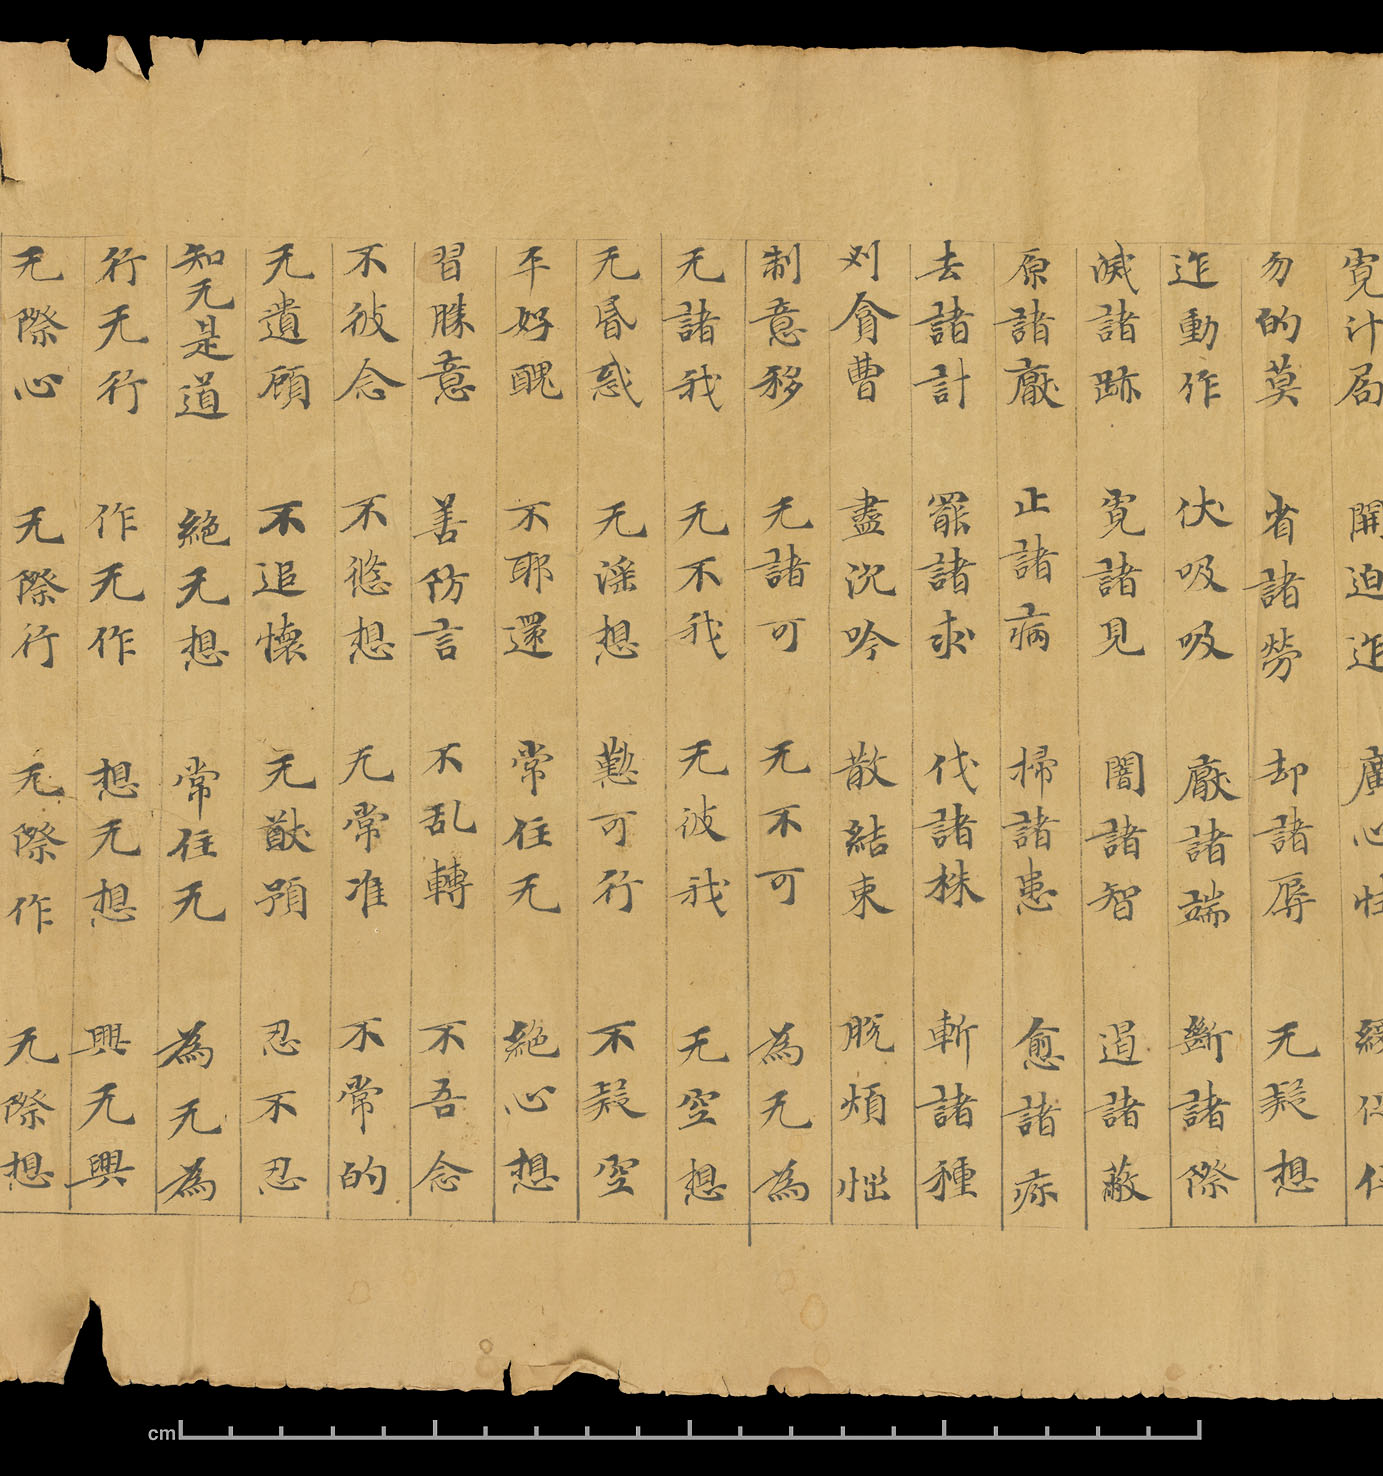 寛汁局 開迫迮 廣心性
勿的莫 省諸勞 却諸辱 无疑想
迮動作 伏吸吸 厭諸端 斷諸際
滅諸跡 寛諸見 闇諸智 遏諸蔽
原諸厭 止諸病 掃諸患 愈諸疢
去諸計 罷諸求 伐諸株 斬諸種
刈貪曹 盡沉吟 散結束 脫煩惱
制意移 无諸可 无不可 為无為
无諸我 无不我 无彼我 无空想
无昏惑 无滛想 懃可行 不疑空
平好醜 不耶還 常住无 絕心想
習勝意 善防言 不乱轉 不吾念
不彼念 不愆想 无常准 不常的
无遺顧 不追懷 无猷預 忍不忍
知无是道 絕无想 常住无 為无為
行无行 作无作 想无想 興无興
无際心 无際行 无際作 无際想